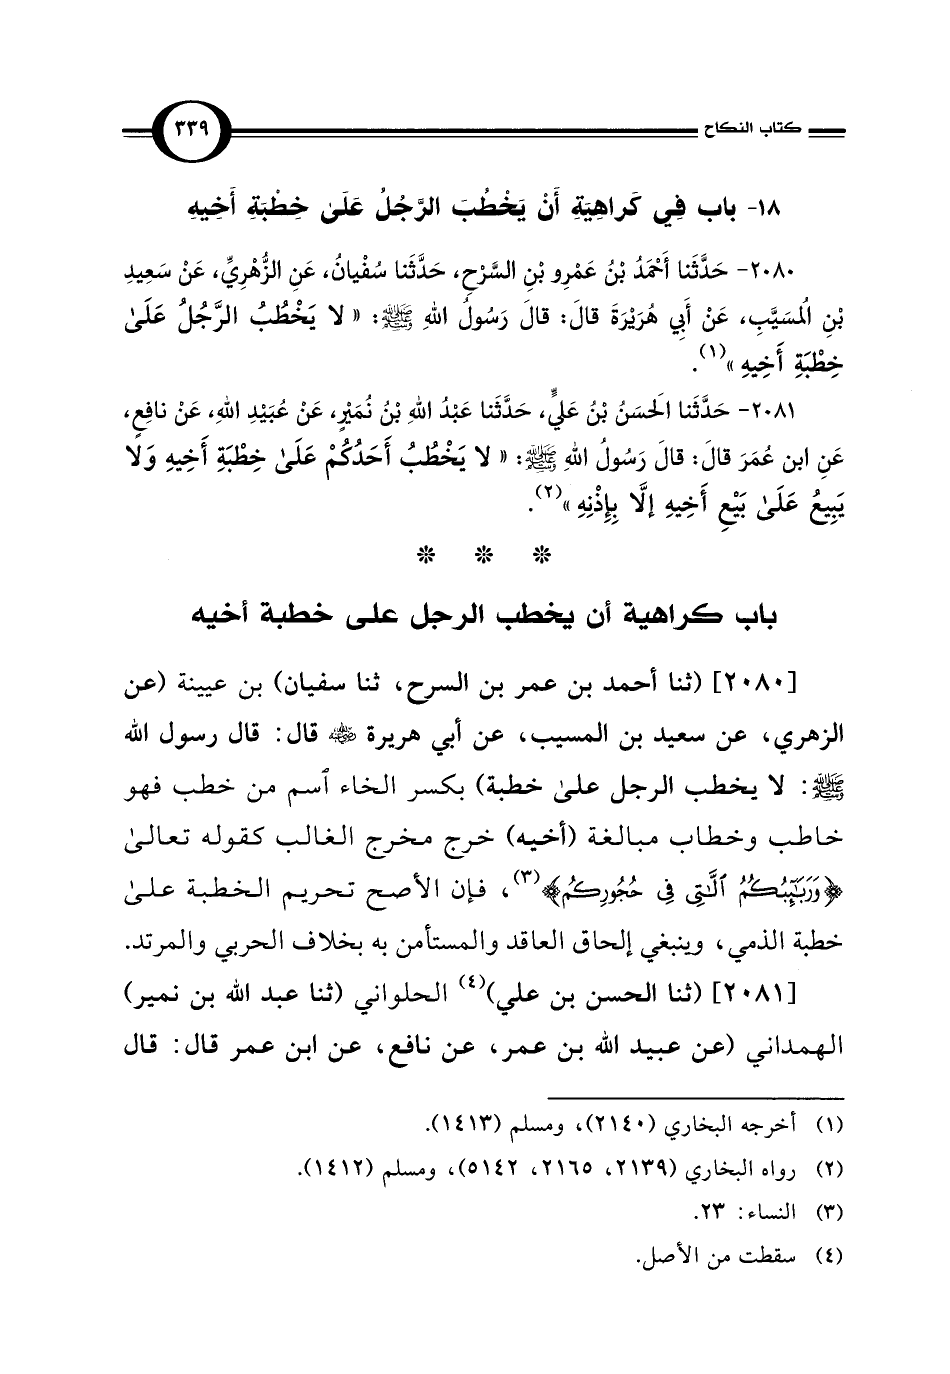 كتاب النكاح ٣٣٩
١٨- باب فِي كَراهِيَةِ أَنْ يَخْطُبَ الرَّجُلُ عَلَىٰ خِطْبَةِ أَخِيهِ
٢٠٨٠- حَدَّثَنا أَحْمَدُ بْنُ عَمْرِو بْنِ السَّرْحِ، حَدَّثَنا سُفْيانُ، عَنِ الزُّهْرِيِّ، عَنْ سَعِيدِ
بْنِ الُمسَيَّبِ، عَنْ أَبِي هُرَيْرَةَ قالَ: قالَ رَسُولُ اللهِ ﷺ: « لا يَخْطُبُ الرَّجُلُ عَلَىٰ
خِطْبَةِ أَخِيهِ »(١).
٢٠٨١- حَدَّثَنا الَحسَنُ بْنُ عَلِيٍّ، حَدَّثَنا عَبْدُ اللهِ بْنُ نُمَيْرٍ، عَنْ عُبَيْدِ اللهِ، عَنْ نافِعٍ،
عَنِ ابن عُمَرَ قالَ: قالَ رَسُولُ اللهِ ﷺ: « لا يَخْطُبُ أَحَدُكُمْ عَلَىٰ خِطْبَةِ أَخِيهِ وَلا
يَبِيعُ عَلَىٰ بَيْعِ أَخِيهِ إلَّا بِإِذْنِهِ »(٢).
* * *
باب كراهية أن يخطب الرجل على خطبة أخيه
[٢٠٨٠] (ثنا أحمد بن عمر بن السرح، ثنا سفيان) بن عيينة (عن
الزهري، عن سعيد بن المسيب، عن أبي هريرة رضي الله عنه قال: قال رسول الله
ﷺ: لا يخطب الرجل علىٰ خطبة) بكسر الخاء ٱسم من خطب فهو
خاطب وخطاب مبالغة (أخيه) خرج مخرج الغالب كقوله تعالىٰ
﴿وَرَبَٰٓئِبُكُمُ ٱلَّٰتِى فِى حُجُورِكُم﴾(٣)، فإن الأصح تحريم الخطبة علىٰ
خطبة الذمي، وينبغي إلحاق العاقد والمستأمن به بخلاف الحربي والمرتد.
[٢٠٨١] (ثنا الحسن بن علي)(٤) الحلواني (ثنا عبد الله بن نمير)
الهمداني (عن عبيد الله بن عمر، عن نافع، عن ابن عمر قال: قال
(١) أخرجه البخاري (٢١٤٠)، ومسلم (١٤١٣).
(٢) رواه البخاري (٢١٣٩، ٢١٦٥، ٥١٤٢)، ومسلم (١٤١٢).
(٣) النساء: ٢٣.
(٤) سقطت من الأصل.